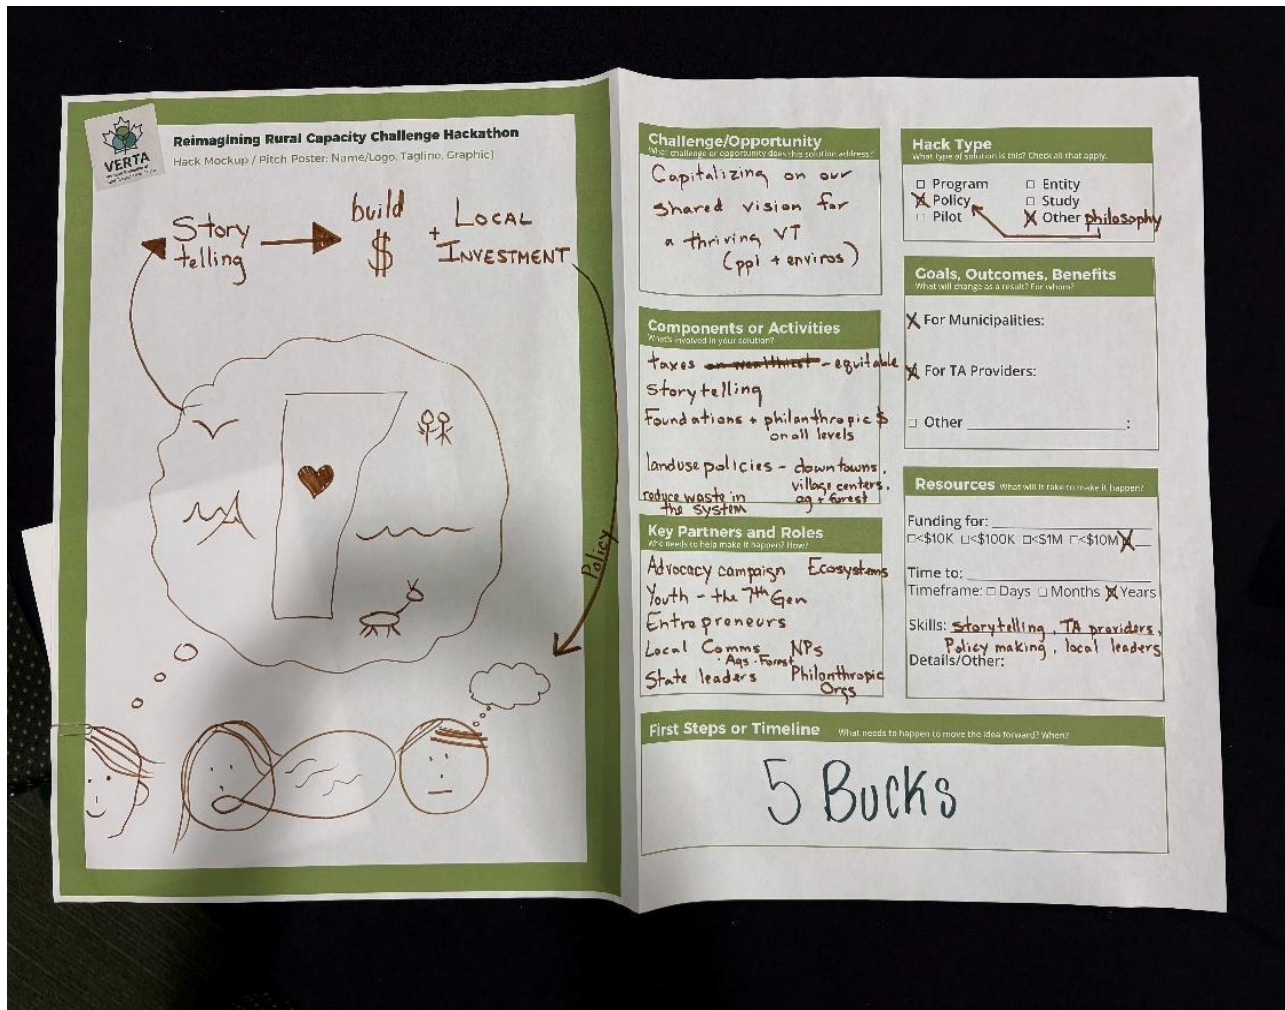 VERTA
Reimagining Rural Capacity Challenge Hackathon
Hack Mockup / Pitch Poster: Name/Logo, Tagline, Graphic)
Story
telling
build
$
+ LOCAL
INVESTMENT
Policy
Challenge/Opportunity
What challenge or opportunity does this solution address?
Capitalizing on our
shared vision for
a thriving VT
(ppl + enviros)
Components or Activities
What's involved in your solution?
taxes on wealthiest - equitable
storytelling
Foundations + philanthropic $
on all levels
landuse policies - downtowns,
village centers,
ag + forest
reduce waste in
the system
Key Partners and Roles
Who needs to help make it happen? How?
Advocacy campaign Ecosystems
Youth - the 7th Gen
Entropreneurs
Local Comms NPs
· Ags · Forest
State leaders Philanthropic
Orgs
Hack Type
What type of solution is this? Check all that apply.
☐ Program ☐ Entity
X Policy ☐ Study
☐ Pilot X Other philosophy
Goals, Outcomes, Benefits
What will change as a result? For whom?
X For Municipalities:
X For TA Providers:
☐ Other ____________________:
Resources What will it take to make it happen?
Funding for: ____________________
☐<$10K ☐<$100K ☐<$1M ☐<$10M X __
Time to: ____________________
Timeframe: ☐ Days ☐ Months X Years
Skills: storytelling, TA providers,
Policy making, local leaders
Details/Other:
First Steps or Timeline What needs to happen to move the idea forward? When?
5 Bucks